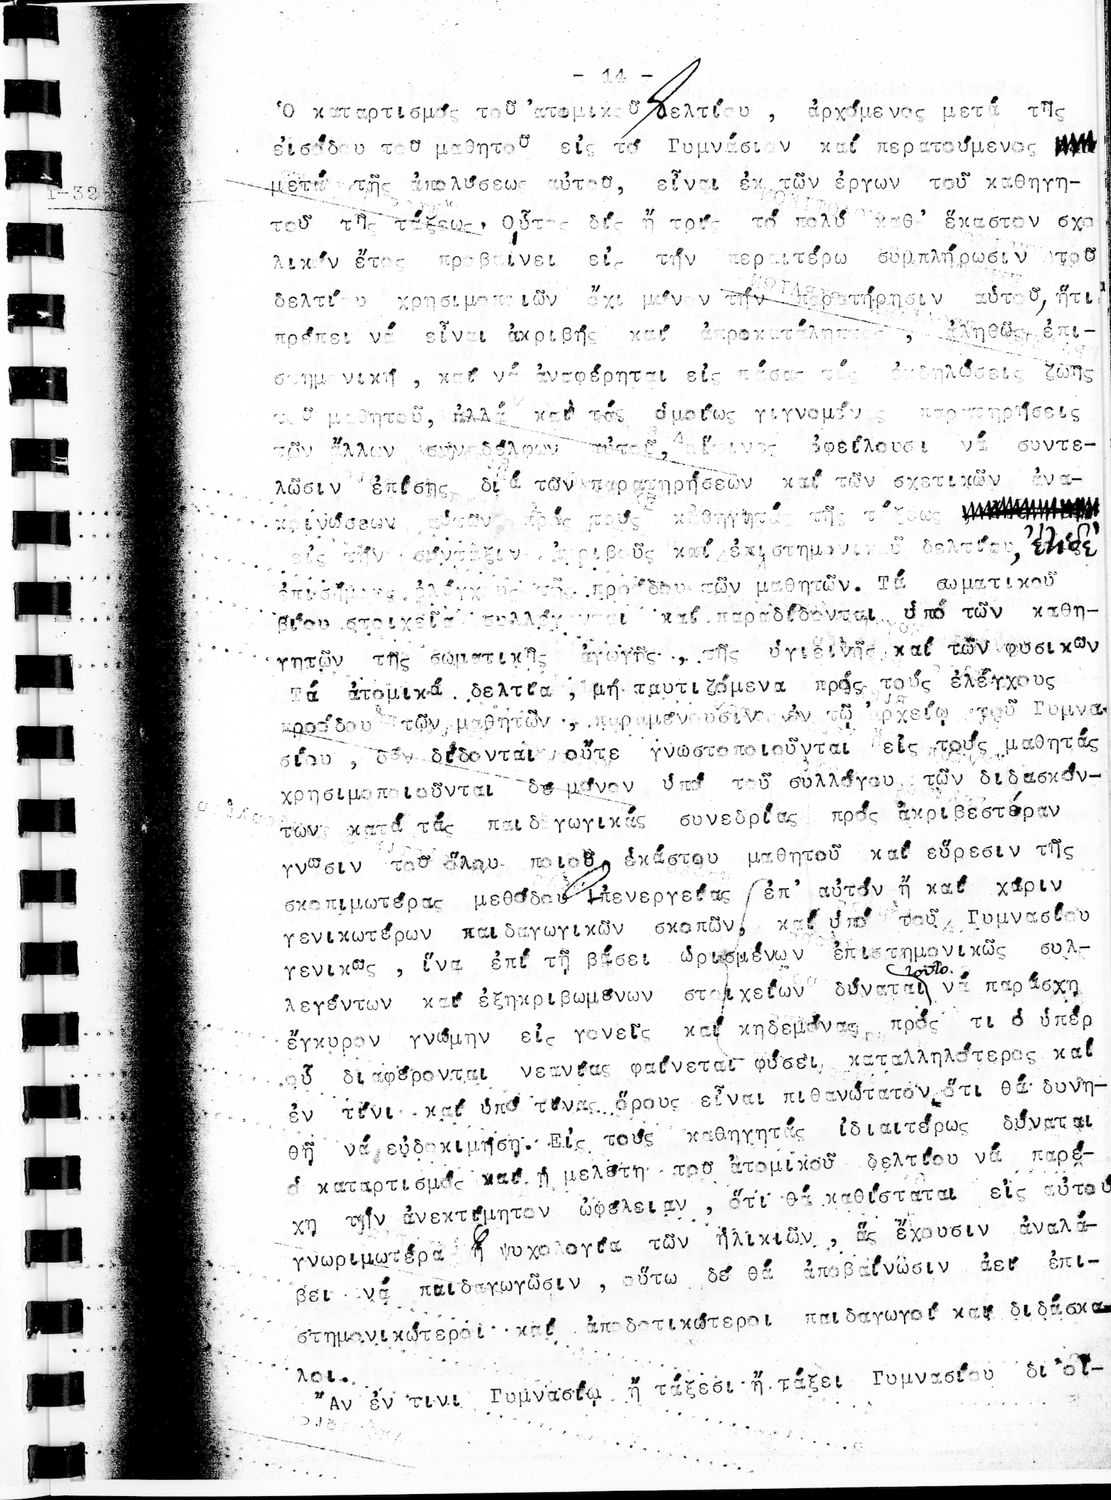 - 14 -
Ὁ καταρτισμός τοῦ ἀτομικοῦ δελτίου , ἀρχόμενος μετά τῆς
εἰσόδου τοῦ μαθητοῦ εἰς τό Γυμνάσιον καί περατούμενος
μετά τῆς ἀπολύσεως αὐτοῦ, εἶναι ἐκ τῶν ἔργων τοῦ καθηγη-
τοῦ τῆς τάξεως. Οὗτος δίς ἤ τρίς τό πολύ καθ' ἕκαστον σχο
λικόν ἔτος προβαίνει εἰς τήν περαιτέρω συμπλήρωσιν τοῦ
δελτίου χρησιμοποιῶν ὄχι μόνον τήν παρατήρησιν αὐτοῦ, ἥτις
πρέπει νά εἶναι ἀκριβής καί ἀπροκατάληπτος , ἀληθῶς ἐπι-
στημονική , καί νά ἀναφέρηται εἰς πάσας τάς ἐκδηλώσεις ζωῆς
τοῦ μαθητοῦ, ἀλλά καί τάς ὁμοίως γιγνομένας παρατηρήσεις
τῶν ἄλλων συναδέλφων αὐτοῦ, οἵτινες ὀφείλουσι νά συντε-
λῶσιν ἐπίσης διά τῶν παρατηρήσεων καί τῶν σχετικῶν ἀνα-
κοινώσεων αὐτῶν πρός τούς καθηγητάς τῆς τάξεως
εἰς τήν σύνταξιν ἀκριβοῦς καί ἐπιστημονικοῦ δελτίου,
ἐπισήμους ἐλέγχους τῆς προόδου τῶν μαθητῶν. Τά σωματικοῦ
βίου στοιχεῖα συλλέγονται καί παραδίδονται ὑπό τῶν καθη-
γητῶν τῆς σωματικῆς ἀγωγῆς , τῆς ὑγιεινῆς καί τῶν φυσικῶν
Τά ἀτομικά δελτία , μή ταυτιζόμενα πρός τούς ἐλέγχους
προόδου τῶν μαθητῶν , παραμένουσιν ἐν τῷ ἀρχείῳ τοῦ Γυμνα
σίου , δέν δίδονται οὔτε γνωστοποιοῦνται εἰς τούς μαθητάς
χρησιμοποιοῦνται δέ μόνον ὑπό τοῦ συλλόγου τῶν διδασκόν-
των κατά τάς παιδαγωγικάς συνεδρίας πρός ἀκριβεστέραν
γνῶσιν τοῦ ὅλου ποιοῦ ἑκάστου μαθητοῦ καί εὕρεσιν τῆς
σκοπιμωτέρας μεθόδου ἐπενεργείας ἐπ' αὐτόν ἤ καί χάριν
γενικωτέρων παιδαγωγικῶν σκοπῶν, καί ὑπό τοῦ Γυμνασίου
γενικῶς , ἵνα ἐπί τῇ βάσει ὡρισμένων ἐπιστημονικῶς συλ-
λεγέντων καί ἐξηκριβωμένων στοιχείων δύναται τοῦτο νά παράσχῃ
ἔγκυρον γνώμην εἰς γονεῖς καί κηδεμόνας πρός τι ὁ ὑπέρ
οὗ διαφέρονται νεανίας φαίνεται φύσει καταλληλότερος καί
ἐν τίνι καί ὑπό τίνας ὅρους εἶναι πιθανώτατον ὅτι θά δυνη-
θῇ νά εὐδοκιμήσῃ. Εἰς τούς καθηγητάς ἰδιαιτέρως δύναται
ὁ καταρτισμός καί ἡ μελέτη τοῦ ἀτομικοῦ δελτίου νά παρά-
χῃ τήν ἀνεκτίμητον ὠφέλειαν , ὅτι θά καθίσταται εἰς αὐτού
γνωριμωτέρα ἡ ψυχολογία τῶν ἡλικιῶν , ἅς ἔχουσιν ἀναλά-
βει νά παιδαγωγῶσιν , οὕτω δέ θά ἀποβαίνωσιν ἀεί ἐπι-
στημονικώτεροι καί ἀποδοτικώτεροι παιδαγωγοί καί διδάσκα-
λοι.
Ἄν ἔν τινι Γυμνασίῳ ἤ τάξεσι ἤ τάξει Γυμνασίου δι' οἱ-